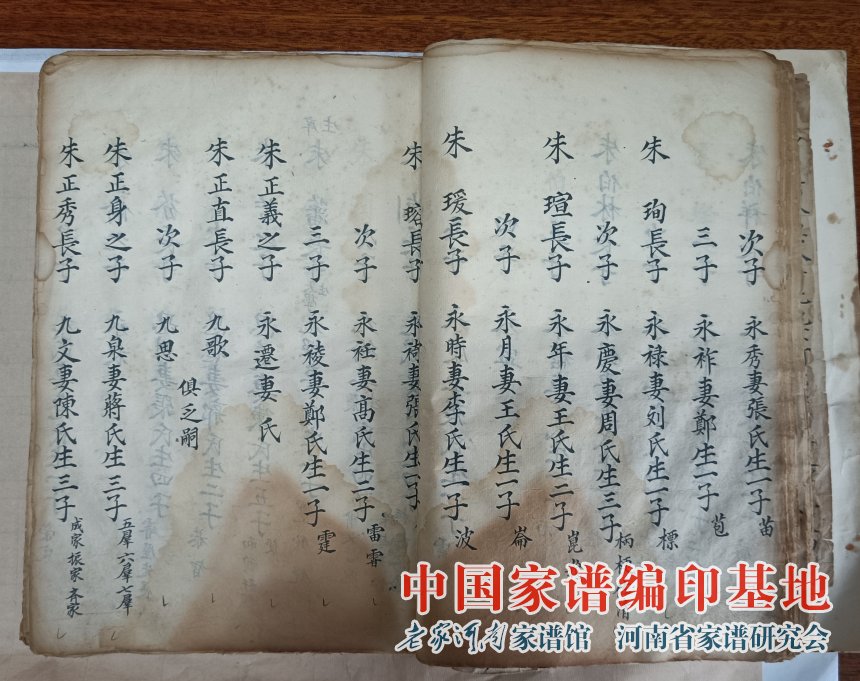 次子 永秀妻張氏生一子 苗
三子 永祚妻鄭氏生一子 苞
朱珣長子 永禄妻刘氏生一子 標
次子 永慶妻周氏生三子 柄
朱瑄長子 永年妻王氏生二子 崑
次子 永月妻王氏生一子 崙
朱瑗長子 永時妻李氏生一子 波
朱瑢長子 妻張氏生
次子 永衽妻高氏生二子 雷 霄
三子 永祾妻鄭氏生一子 霆
朱正義之子 永遷妻 氏
俱乏嗣
朱正直長子 九歌
次子 九思
朱正身之子 九泉妻蔣氏生三子 五羣 六羣 七羣
朱正秀長子 九文妻陳氏生三子 成家 振家 齐家
中国家谱编印基地
老家河南家谱馆 河南省家谱研究会